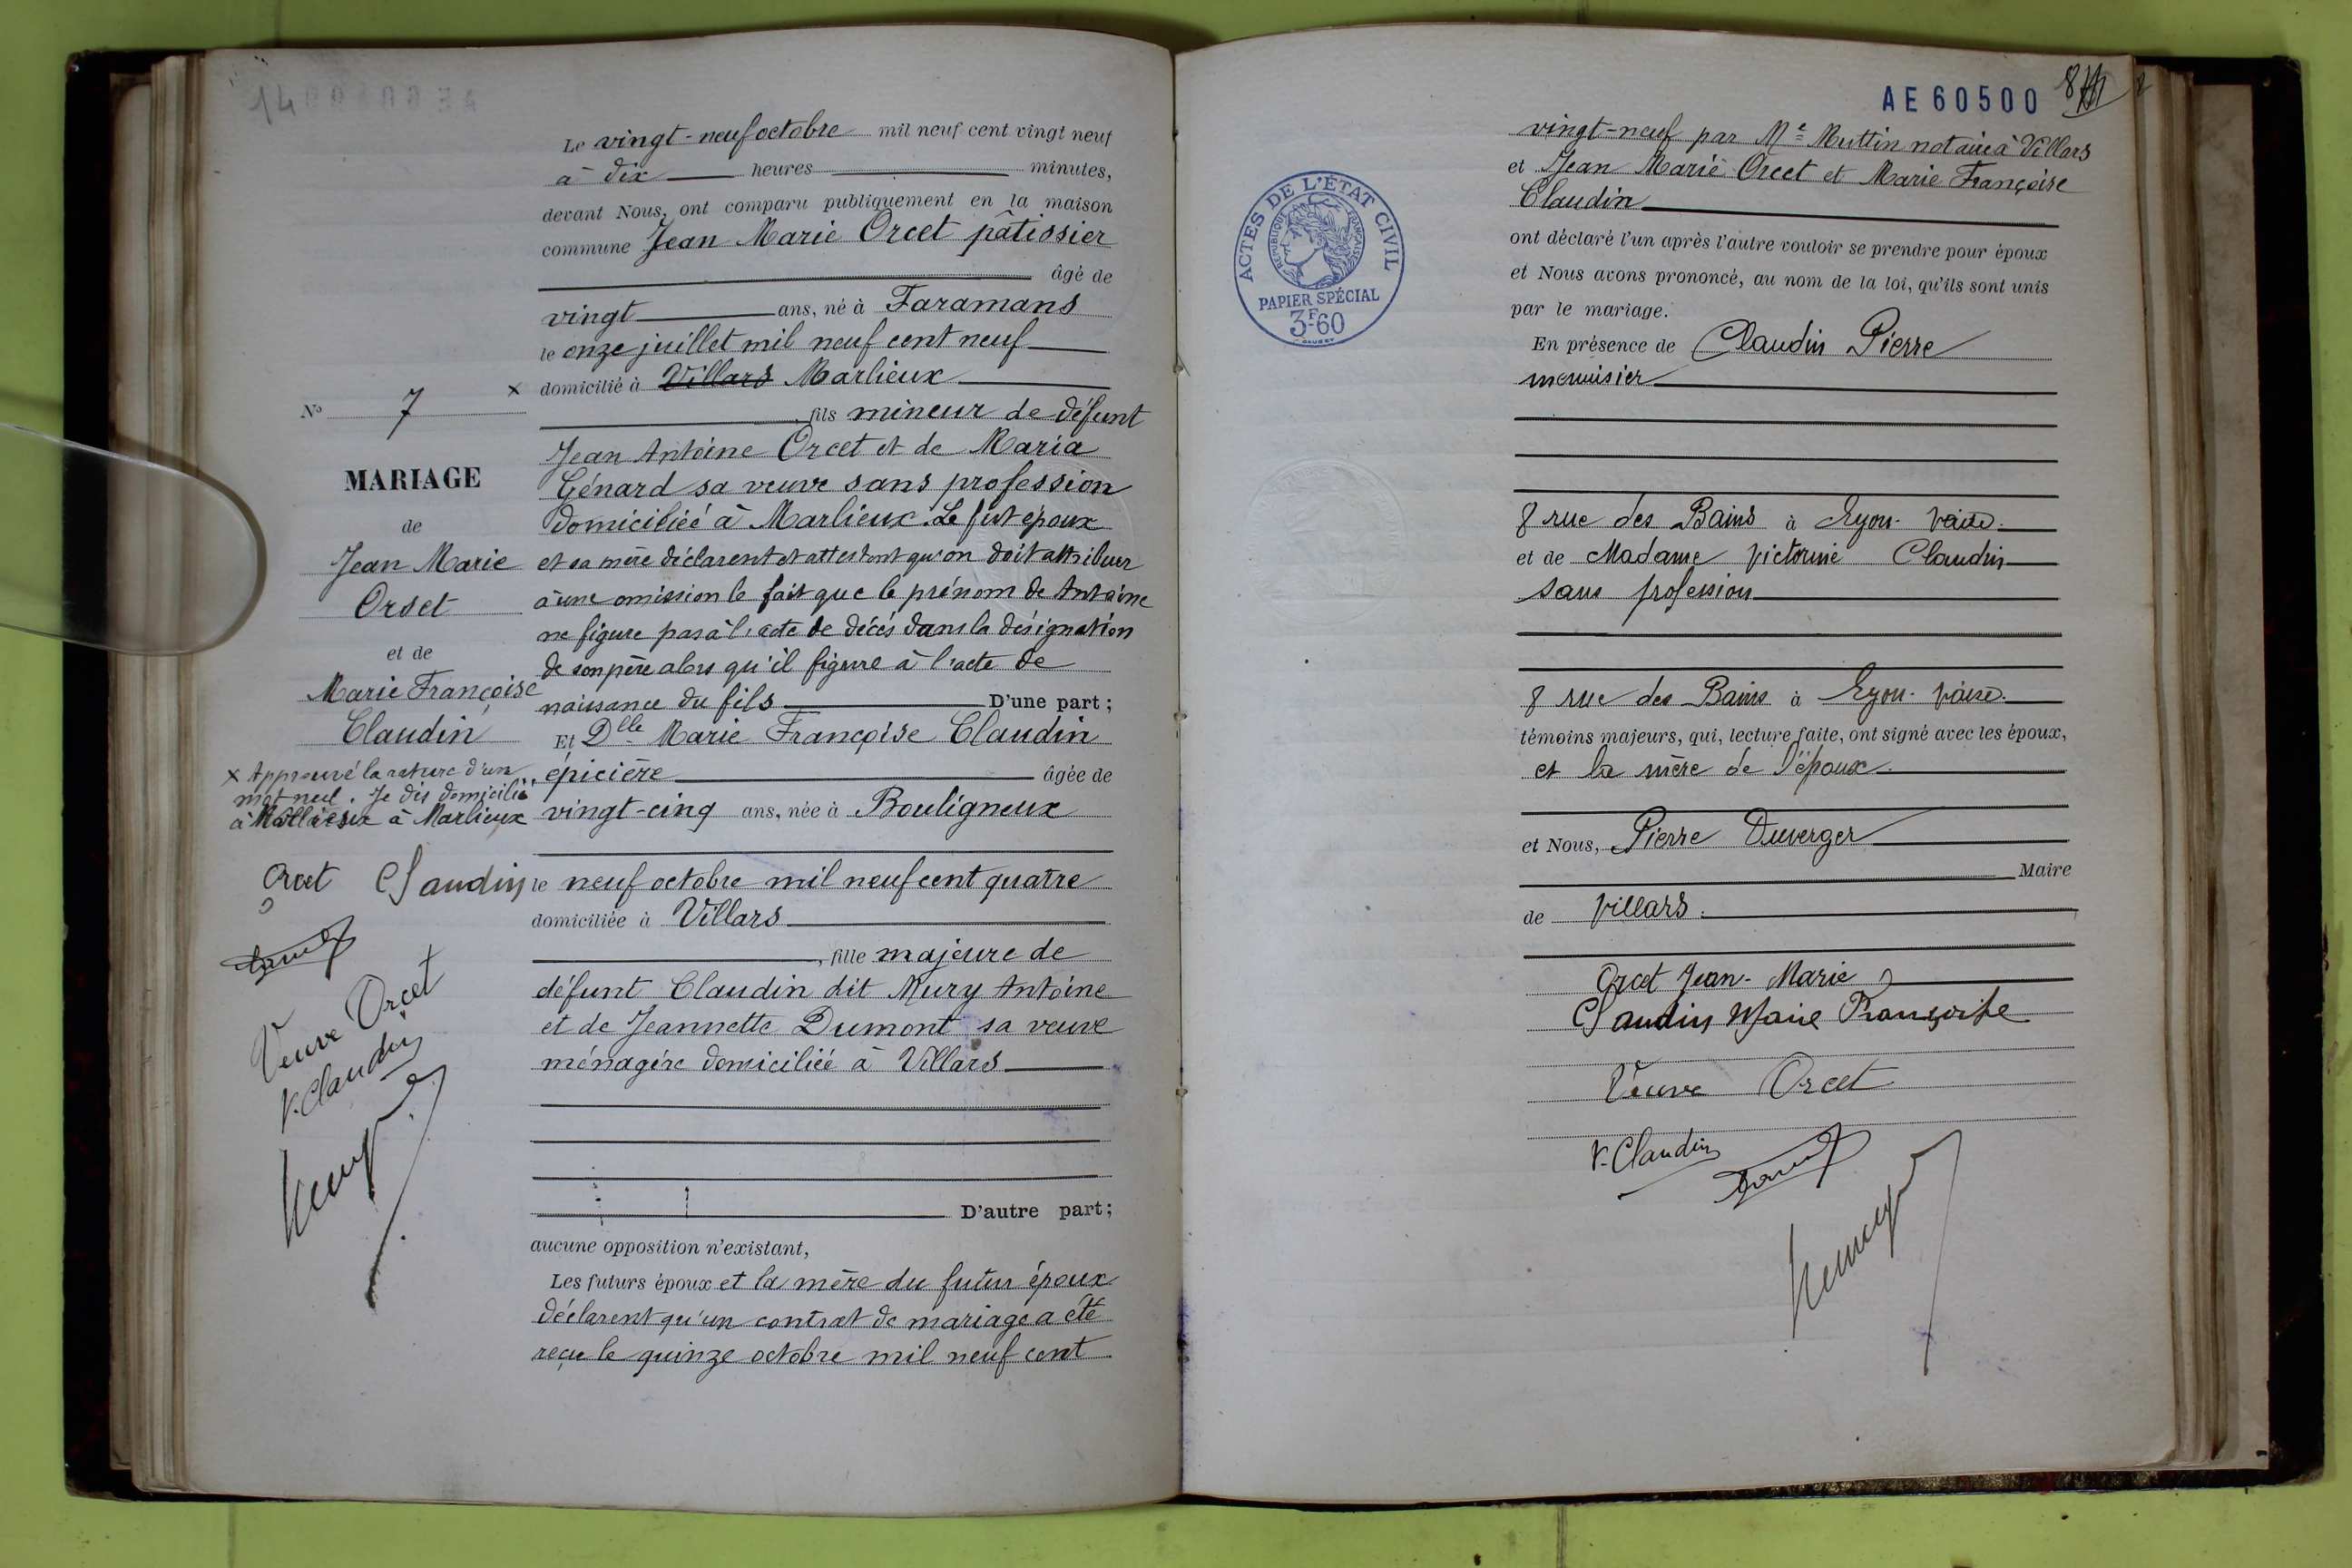 14
Le vingt-neuf octobre mil neuf cent vingt neuf
à dix heures minutes,
devant Nous, ont comparu publiquement en la maison
commune Jean Marie Orcet pâtissier
âgé de
vingt ans, né à Faramans
le onze juillet mil neuf cent neuf
x domicilié à Villars Marlieux
fils mineur de défunt
Jean Antoine Orcet et de Maria
Génard sa veuve sans profession
domiciliée à Marlieux. Le fut époux
et sa mère déclarent et attestent qu'on doit attribuer
à une omission le fait que le prénom de Antoine
ne figure pas à l'acte de décés dans la désignation
de son père alors qu'il figure à l'acte de
naissance du fils D'une part;
Et Dlle Marie Françoise Claudin
épicière âgée de
vingt-cinq ans, née à Bouligneux
le neuf octobre mil neuf cent quatre
domiciliée à Villars
, fille majeure de
défunt Claudin dit Mury Antoine
et de Jeannette Dumont sa veuve
ménagère domiciliée à Villars
D'autre part;
aucune opposition n'existant,
Les futurs époux et la mère du futur époux
déclarent qu'un contrat de mariage a été
reçu le quinze octobre mil neuf cent
No 7
MARIAGE
de
Jean Marie
Orset
et de
Marie Françoise
Claudin
x Approuvé la rature d'un
mot nul. Je dis domicilié
à Marlieux
Orcet Claudin
Veuve Orcet
V. Claudin
AE 60500
vingt-neuf par Me Muttin notaire à Villars
et Jean Marie Orcet et Marie Françoise
Claudin
ont déclaré l'un après l'autre vouloir se prendre pour époux
et Nous avons prononcé, au nom de la loi, qu'ils sont unis
par le mariage.
En présence de Claudin Pierre
menuisier
8 rue des Bains à Lyon-Vaise.
et de Madame Victorine Claudin
sans profession
8 rue des Bains à Lyon-Vaise.
témoins majeurs, qui, lecture faite, ont signé avec les époux,
et la mère de l'époux.
et Nous, Pierre Duverger
Maire
de Villars.
Orcet Jean-Marie
Claudin Marie Françoise
Veuve Orcet
V. Claudin
ACTES DE L'ÉTAT CIVIL
RÉPUBLIQUE FRANÇAISE
PAPIER SPÉCIAL
3F60